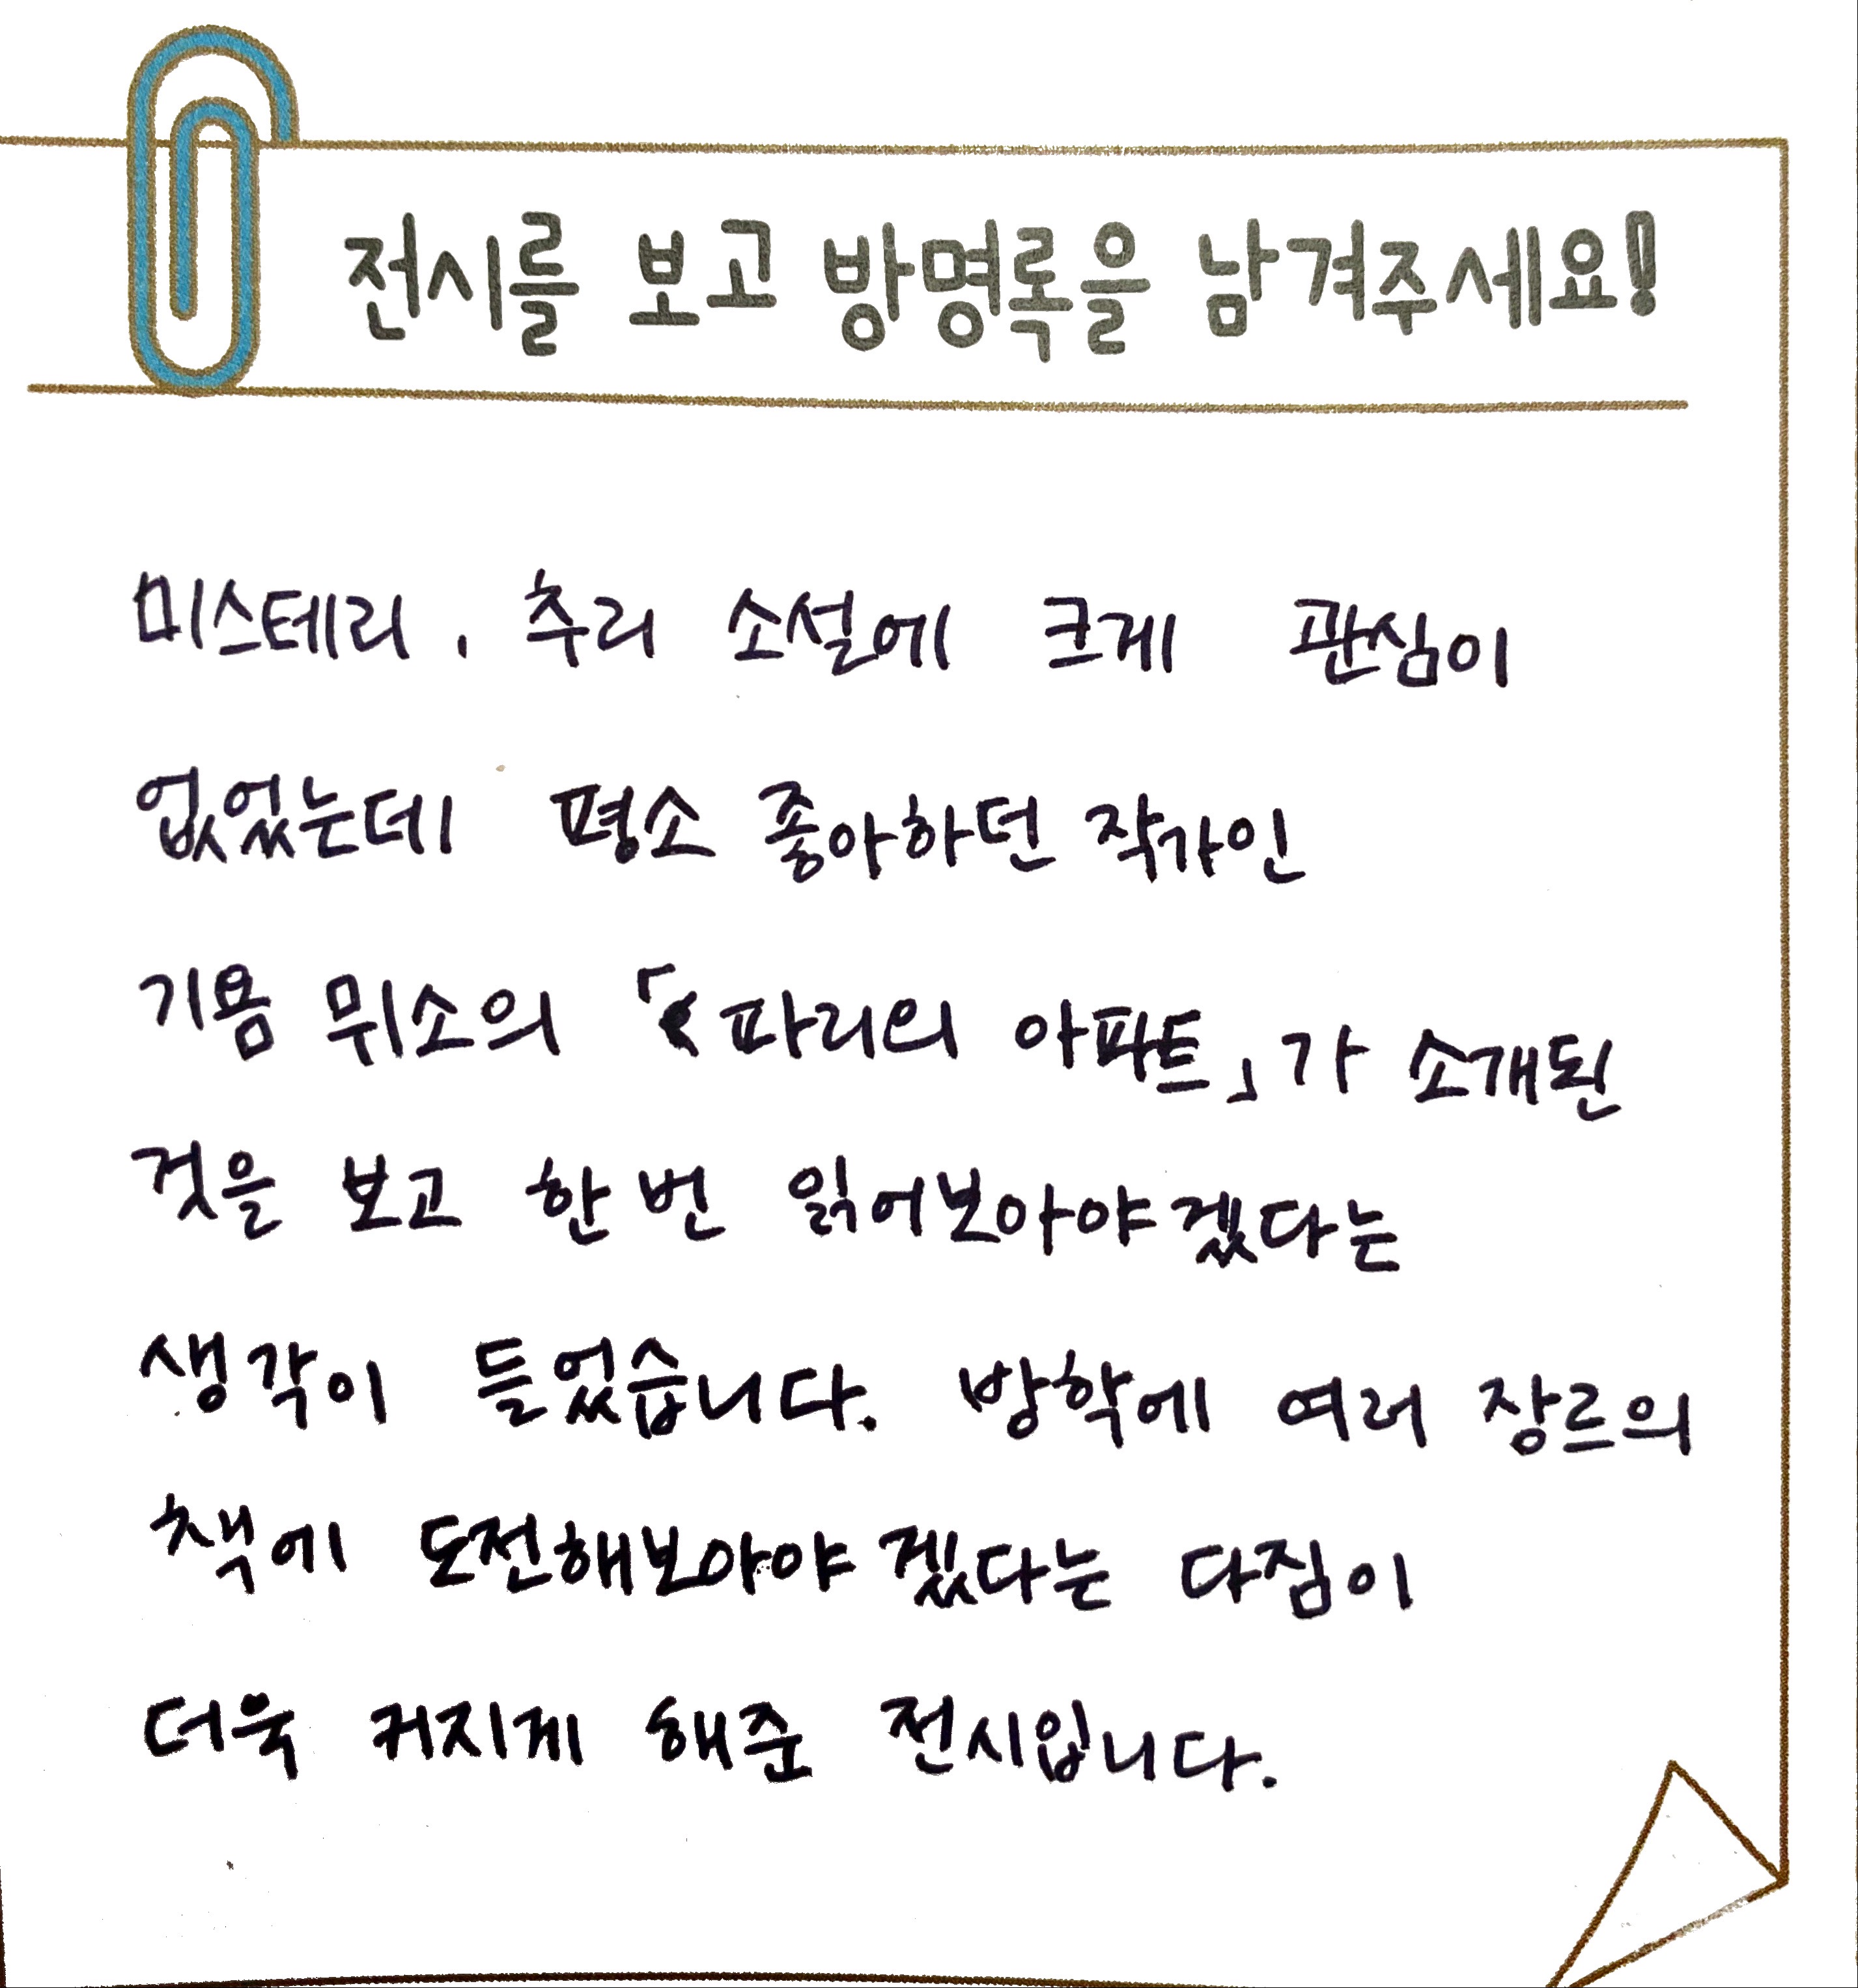 전시를 보고 방명록을 남겨주세요!
미스테리, 추리 소설에 크게 관심이
없었는데 평소 좋아하던 작가인
기욤 뮈소의 「파리의 아파트」가 소개된
것을 보고 한 번 읽어보아야겠다는
생각이 들었습니다. 방학에 여러 장르의
책에 도전해보아야겠다는 다짐이
더욱 커지게 해준 전시입니다.